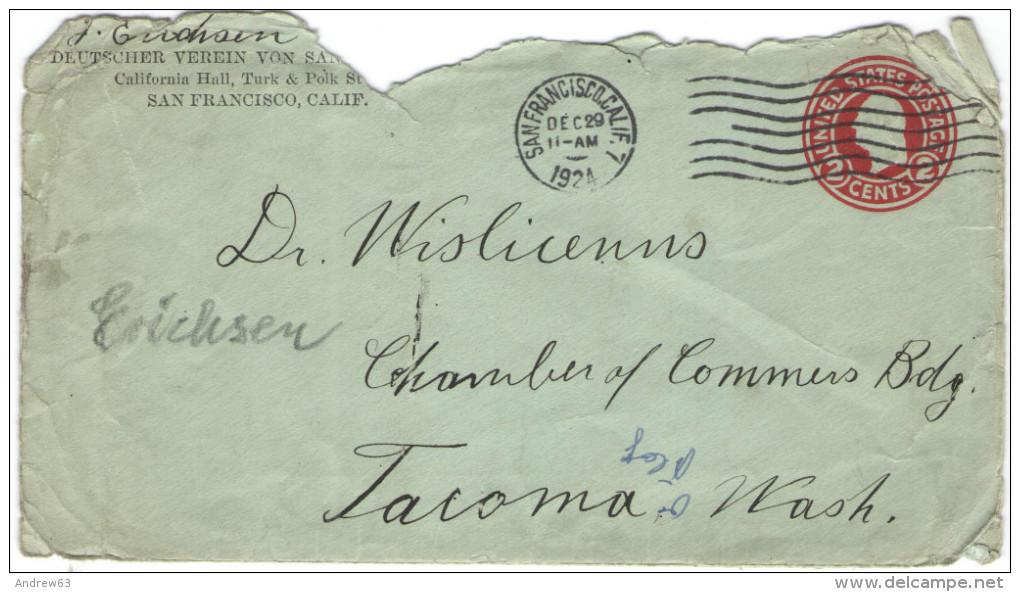 J. Erichsen
DEUTSCHER VEREIN VON SAN
California Hall, Turk & Polk St
SAN FRANCISCO, CALIF.
SAN FRANCISCO, CALIF. 7
DEC 29
11-AM
1924
UNITED STATES POSTAGE
2 CENTS 2
Dr. Wislicenus
Erichsen
Chamber of Commers Bdg.
Tacoma, Wash.
Andrew63
www.delcampe.net